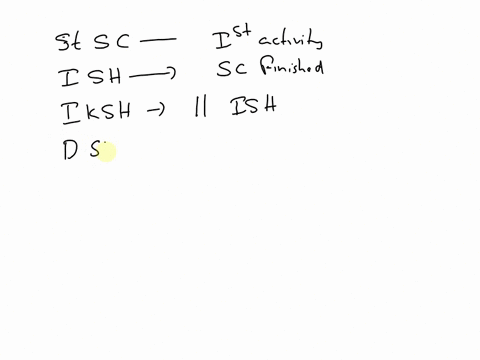 St SC — Ist activity
ISH → SC finished
IKSH → || ISH
D S